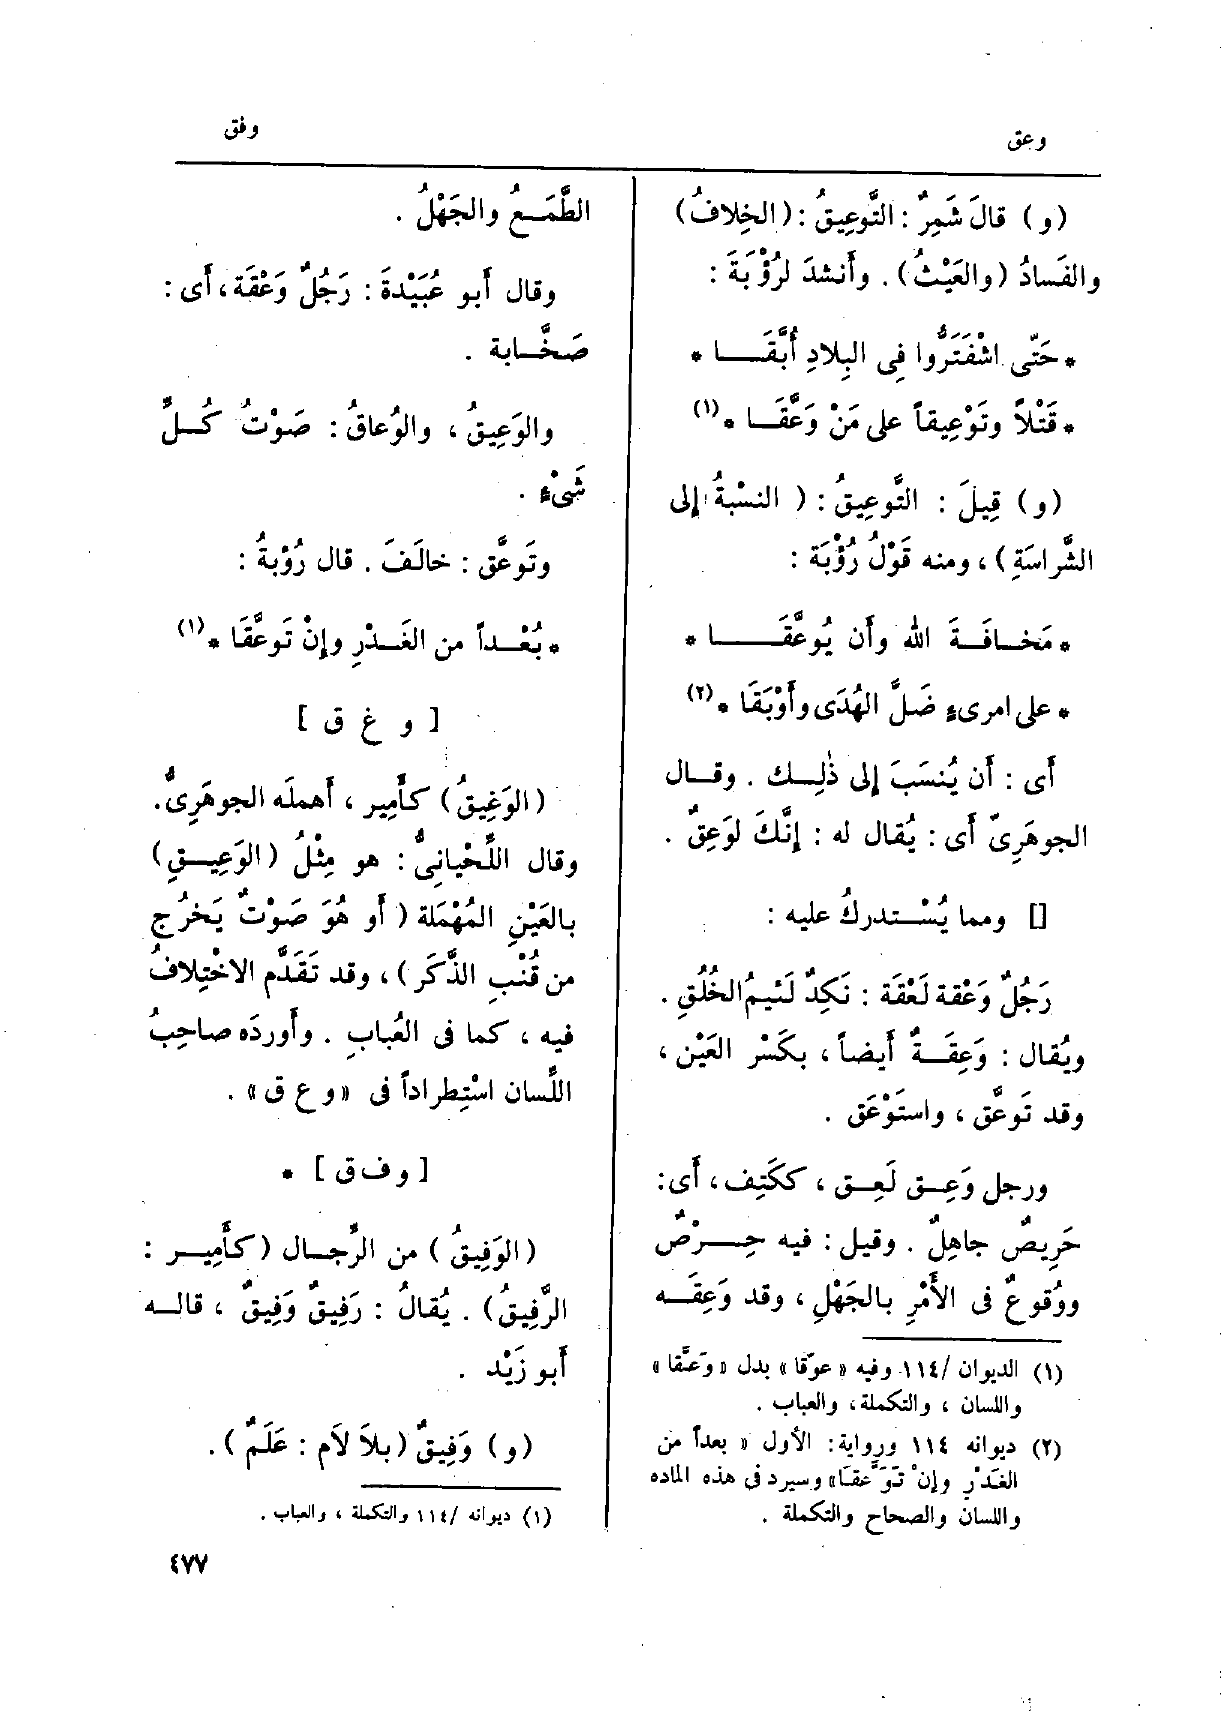 وعق
وفق
(و) قالَ شَمِرٌ : التَّوعِيقُ : (الخِلافُ)
والفَسادُ (والعَيْثُ) . وأَنشدَ لرُؤْبَةَ :
* حَتّى اشْفَتَرُّوا فِى البِلادِ أُبَّقَـا *
* قَتْلاً وتَوْعِيقاً على مَنْ وَعَّقَـا * (١)
(و) قِيلَ : التَّوعِيقُ : ( النسْبَةُ إلى
الشَّراسَةِ) ، ومنه قَوْلُ رُؤْبَة :
* مَخـافَـةَ الله وأَن يُوعَّقَـا *
* على امرىءٍ ضَلَّ الهُدَى وأَوْبَقَا * (٢)
أَى : أَن يُنسَبَ إلى ذٰلِـك . وقـال
الجوهَرِىّ أَى : يُقال له : إنَّكَ لوَعِقٌ .
[] ومما يُسْـتدركُ عليه :
رَجُلٌ وَعْقة لَعْقَة : نَكِدٌ لَئيمُ الخُلُقِ .
ويُقال : وَعِقَـةٌ أَيضاً ، بكَسْر العَيْن ،
وقد تَوعَّق ، واستَوْعَق .
ورجل وَعِـق لَعِـق ، ككَتِف ، أَى:
حَرِيصٌ جاهِلٌ . وقيل : فيه حِـرْصٌ
ووُقوعٌ فى الأَمْرِ بالجَهْلِ ، وقد وَعِقَـه
(١) الديوان /١١٤ وفيه « عوّقا » بدل « وَعَّقا »
واللسان ، والتكملة ، والعباب .
(٢) ديوانه ١١٤ ورواية : الأول « بعداً من
الغَدْر وإنْ تَوَعَّقَا» وسيرد فى هذه الماده
واللسان والصحاح والتكملة .
الطَّمَـعُ والجَهْلُ .
وقال أَبو عُبَيْدةَ : رَجُلٌ وَعْقَة ، أَى :
صَخَّـابة .
والوَعِيقُ ، والوُعاقُ : صَوْتُ كُـلِّ
شَىْءٍ .
وتَوعَّق : خالَفَ . قال رُؤْبةُ :
* بُعْـداً من الغَـدْرِ وإنْ تَوعَّقَا * (١)
[ و غ ق ]
(الوَغِيقُ) كأَمِير ، أَهملَه الجوهَرِىُّ.
وقال اللِّحْيانِىُّ : هو مِثْلُ (الوَعِيـقِ)
بالعَيْنِ المُهْمَلة (أَو هُوَ صَوْتٌ يَخرُج
من قُنْبِ الذَّكَر) ، وقد تَقَدَّم الاخْتِلافُ
فيه ، كما فى العُبابِ . وأَوردَه صاحِبُ
اللِّسان اسْتِطراداً فى «و ع ق» .
[ و ف ق ] *
(الوَفِيقُ) من الرِّجـال (كأَمِيـر :
الرَّفِيقُ) . يُقالُ : رَفِيقٌ وَفِيقٌ ، قالـه
أَبو زَيْد .
(و) وَفِيقٌ (بلاَ لاَم : عَلَمٌ) .
(١) ديوانه /١١٤ والتكملة ، والعباب .
٤٧٧